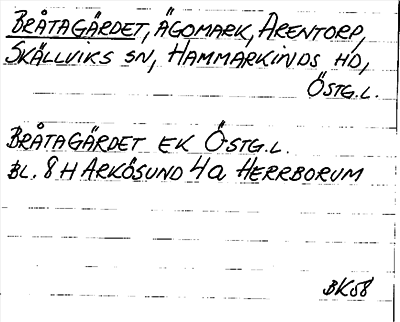 BRÅTAGÄRDET, ÄGOMARK, ARENTORP,
SKÄLLVIKS SN, HAMMARKINDS HD,
ÖSTG.L.
BRÅTAGÄRDET EK ÖSTG.L.
BL. 8 H ARKÖSUND 4a HERRBORUM
BK58